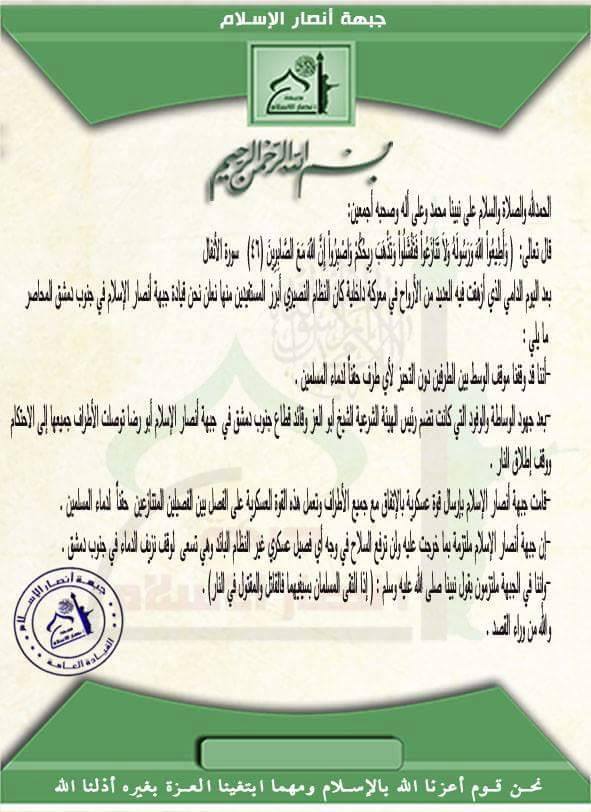 جبهة أنصار الإسلام
جبهة
أنصار الإسلام
بسم الله الرحمن الرحيم
الحمدلله والصلاة والسلام على نبينا محمد وعلى آله وصحبه أجمعين:
قال تعالى: (وَأَطِيعُواْ اللّهَ وَرَسُولَهُ وَلاَ تَنَازَعُواْ فَتَفْشَلُواْ وَتَذْهَبَ رِيحُكُمْ وَاصْبِرُواْ إِنَّ اللّهَ مَعَ الصَّابِرِينَ (٤٦) سورة الأنفال
بعد اليوم الدامي الذي أزهقت فيه العديد من الأرواح في معركة داخلية كان النظام النصيري أبرز المستفيدين منها نعلن نحن قيادة جبهة أنصار الإسلام في جنوب دمشق المحاصر
ما يلي :
-أننا قد وقفنا موقف الوسط بين الطرفين دون التحيز لأي طرف حقناً لدماء المسلمين .
-بعد جهود الوساطة والوفود التي كانت تضم رئيس الهيئة الشرعية الشيخ أبو العز وقائد قطاع جنوب دمشق في جبهة أنصار الإسلام أبو رضا توصلت الأطراف جميعها إلى الاحتكام
ووقف إطلاق النار .
-قامت جبهة أنصار الإسلام بإرسال قوة عسكرية بالإتفاق مع جميع الأطراف وتعمل هذه القوة العسكرية على الفصل بين الفصيلين المتنازعين حقناً لدماء المسلمين .
-إن جبهة أنصار الإسلام ملتزمة بما خرجت عليه ولن ترفع السلاح في وجه أي فصيل عسكري غير النظام البائد وهي تسعى لوقف نزيف الدماء في جنوب دمشق .
-وإننا في الجبهة ملتزمون بقول نبينا صلى الله عليه وسلم : (إذا التقى المسلمان بسيفيهما فالقاتل والمقتول في النار) .
والله من وراء القصد .
جبهة أنصار الإسلام
القيادة العامة
نحن قوم أعزنا الله بالإسلام ومهما ابتغينا العزة بغيره أذلنا الله